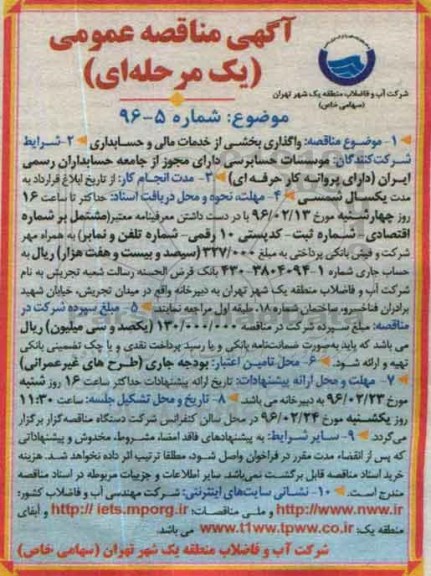 آگهی مناقصه عمومی
(یک مرحله‌ای)
شرکت آب و فاضلاب منطقه یک شهر تهران
(سهامی خاص)
موضوع: شماره ۵-۹۶
۱- موضوع مناقصه: واگذاری بخشی از خدمات مالی و حسابداری ۲- شرایط
شرکت‌کنندگان: موسسات حسابرسی دارای مجوز از جامعه حسابداران رسمی
ایران (دارای پروانه کار حرفه ای) ۳- مدت انجام کار: از تاریخ ابلاغ قرارداد به
مدت یکسال شمسی ۴- مهلت، نحوه و محل دریافت اسناد: حداکثر تا ساعت ۱۶
روز چهارشنبه مورخ ۹۶/۰۲/۱۳ با در دست داشتن معرفینامه معتبر (مشتمل بر شماره
اقتصادی - شماره ثبت - کدپستی ۱۰ رقمی - شماره تلفن و نمابر) به همراه مهر
شرکت و فیش بانکی پرداختی به مبلغ ۳۲۷/۰۰۰ (سیصد و بیست و هفت هزار) ریال به
حساب جاری شماره ۱-۳۸۰۴۰۹۴-۴۳۰ بانک قرض الحسنه رسالت شعبه تجریش به نام
شرکت آب و فاضلاب منطقه یک شهر تهران به دبیرخانه واقع در میدان تجریش، خیابان شهید
برادران فناخسرو، ساختمان شماره ۱۸، طبقه اول مراجعه نمایند. ۵- مبلغ سپرده شرکت در
مناقصه: مبلغ سپرده شرکت در مناقصه ۱۳۰/۰۰۰/۰۰۰ (یکصد و سی میلیون) ریال
می باشد که باید به‌صورت ضمانت‌نامه بانکی و یا رسید پرداخت نقدی و یا چک تضمینی بانکی
تهیه و ارائه شود. ۶- محل تامین اعتبار: بودجه جاری (طرح های غیرعمرانی)
۷- مهلت و محل ارائه پیشنهادات: تاریخ ارائه پیشنهادات حداکثر ساعت ۱۶ روز شنبه
مورخ ۹۶/۰۲/۲۳ به دبیرخانه می باشد. ۸- تاریخ و محل تشکیل جلسه: ساعت ۱۱:۳۰
روز یکشنبه مورخ ۹۶/۰۲/۲۴ در محل سالن کنفرانس شرکت دستگاه مناقصه‌گزار برگزار
می‌گردد. ۹- سایر شرایط: به پیشنهادهای فاقد امضاء، مشروط، مخدوش و پیشنهاداتی
که پس از انقضاء مدت مقرر در فراخوان واصل شود، مطلقا ترتیب اثر داده نخواهد شد. هزینه
خرید اسناد مناقصه قابل برگشت نمی‌باشد. سایر اطلاعات و جزییات مربوطه در اسناد مناقصه
مندرج است. ۱۰- نشانی سایت‌های اینترنتی: شرکت مهندسی آب و فاضلاب کشور:
http://www.nww.ir و ملی مناقصات: http:// iets.mporg.ir و آبفای
منطقه یک: www.t1ww.tpww.co.ir می باشد.
شرکت آب و فاضلاب منطقه یک شهر تهران (سهامی خاص)